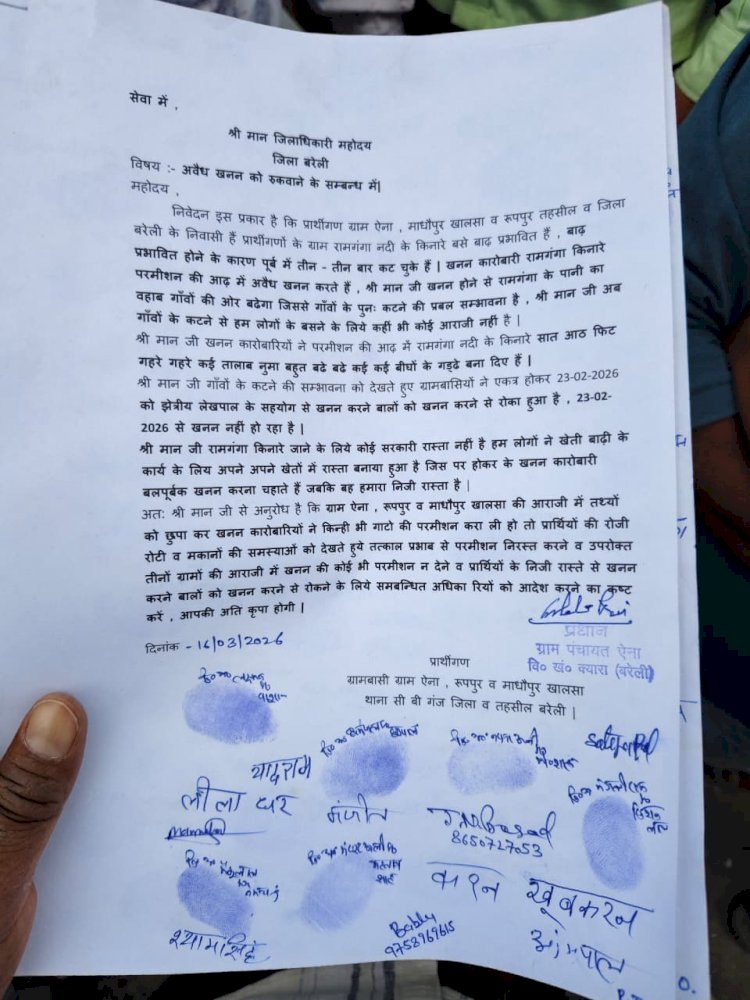 सेवा में ,
श्री मान जिलाधिकारी महोदय
जिला बरेली
विषय :- अवैध खनन को रुकवाने के सम्बन्ध में|
महोदय ,
निवेदन इस प्रकार है कि प्रार्थीगण ग्राम ऐना , माधौपुर खालसा व रूपपुर तहसील व जिला
बरेली के निवासी हैं प्रार्थीगणों के ग्राम रामगंगा नदी के किनारे बसे बाढ़ प्रभावित हैं , बाढ़
प्रभावित होने के कारण पूर्ब में तीन - तीन बार कट चुके हैं | खनन कारोबारी रामगंगा किनारे
परमीशन की आढ़ में अवैध खनन करते हैं , श्री मान जी खनन होने से रामगंगा के पानी का
वहाब गाँवों की ओर बढेगा जिससे गाँवों के पुनः कटने की प्रबल सम्भावना है , श्री मान जी अब
गाँवों के कटने से हम लोगों के बसने के लिये कहीं भी कोई आराजी नहीं है |
श्री मान जी खनन कारोबारियों ने परमीशन की आढ़ में रामगंगा नदी के किनारे सात आठ फिट
गहरे गहरे कई तालाब नुमा बहुत बढे बढे कई कई बीघों के गड्ढे बना दिए हैं |
श्री मान जी गाँवों के कटने की सम्भावना को देखते हुए ग्रामबासियों ने एकत्र होकर 23-02-2026
को झेत्रीय लेखपाल के सहयोग से खनन करने बालों को खनन करने से रोका हुआ है , 23-02-
2026 से खनन नहीं हो रहा है |
श्री मान जी रामगंगा किनारे जाने के लिये कोई सरकारी रास्ता नहीं है हम लोगों ने खेती बाढ़ी के
कार्य के लिय अपने अपने खेतों में रास्ता बनाया हुआ है जिस पर होकर के खनन कारोबारी
बलपूर्बक खनन करना चहाते हैं जबकि बह हमारा निजी रास्ता है |
अत: श्री मान जी से अनुरोध है कि ग्राम ऐना , रूपपुर व माधौपुर खालसा की आराजी में तथ्यों
को छुपा कर खनन कारोबारियों ने किन्ही भी गाटो की परमीशन करा ली हो तो प्रार्थियों की रोजी
रोटी व मकानों की समस्याओं को देखते हुये तत्काल प्रभाब से परमीशन निरस्त करने व उपरोक्त
तीनों ग्रामों की आराजी में खनन की कोई भी परमीशन न देने व प्रार्थियों के निजी रास्ते से खनन
करने बालों को खनन करने से रोकने के लिये समबन्धित अधिका रियों को आदेश करने का कष्ट
करें , आपकी अति कृपा होगी |
दिनांक - 16/03/2026
प्रधान
ग्राम पंचायत ऐना
वि० खं० क्यारा (बरेली)
प्रार्थीगण
ग्रामबासी ग्राम ऐना , रूपपुर व माधौपुर खालसा
थाना सी बी गंज जिला व तहसील बरेली |
यादराम
लीला धर
मंजीत
8650727053
करन
खूबकरन
श्यामसिंह
Babby
9758969615